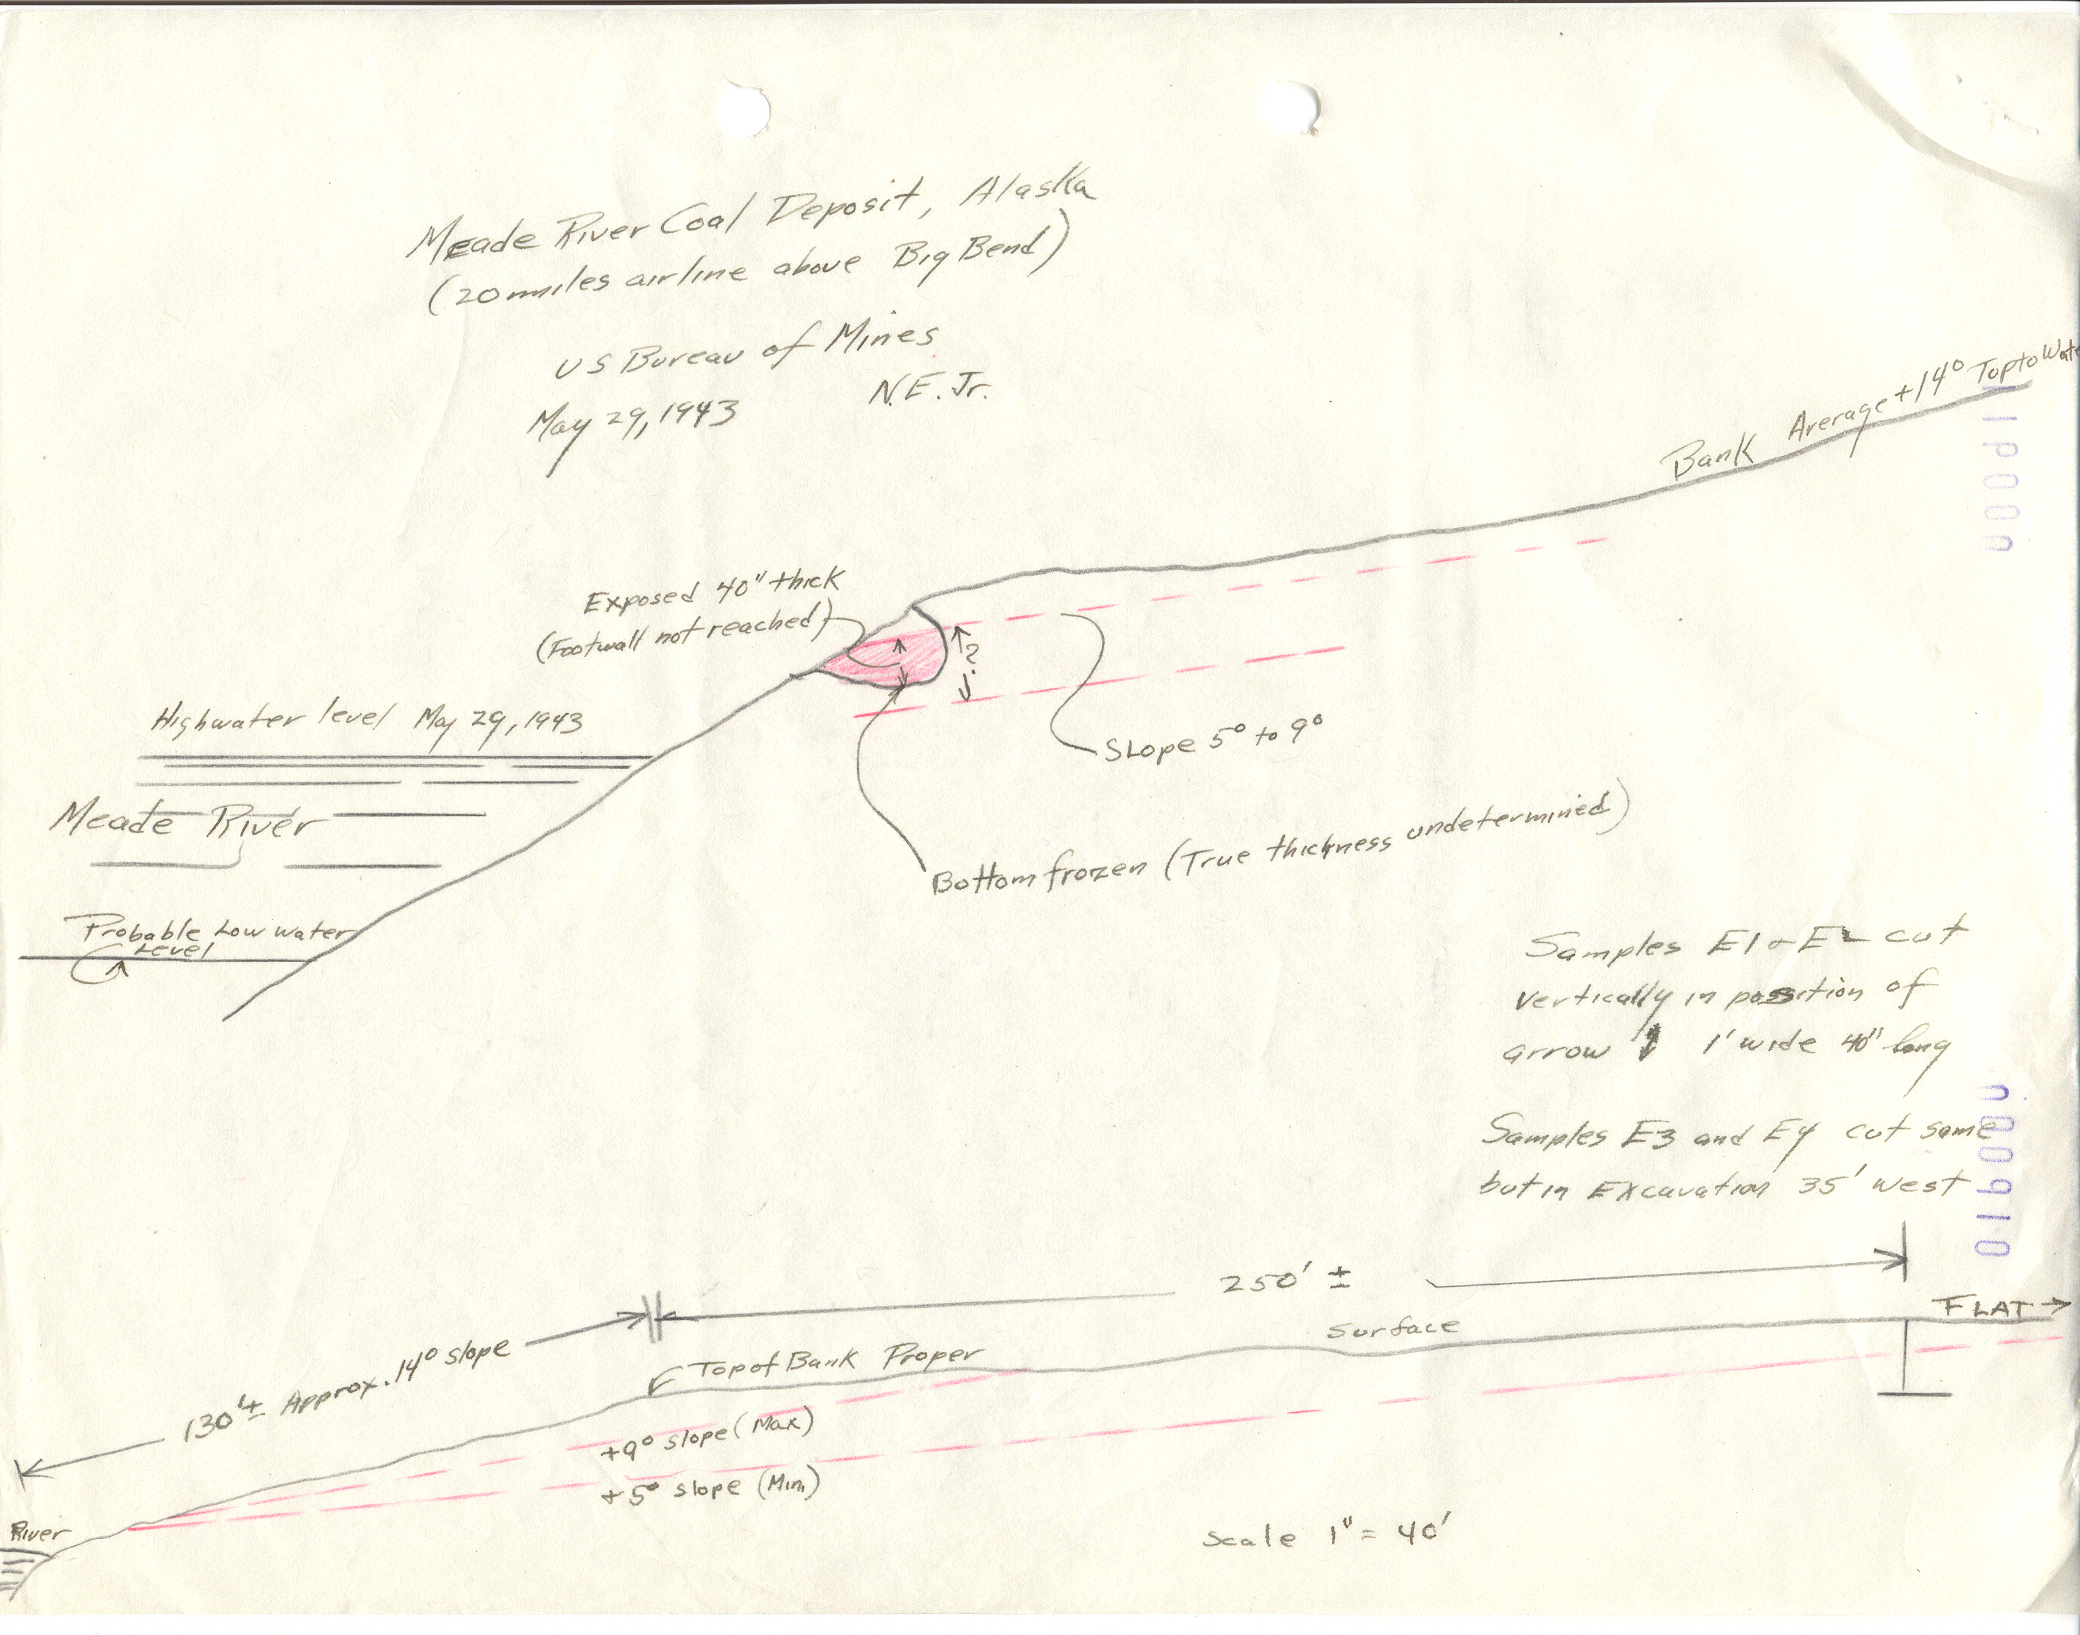 Meade River Coal Deposit, Alaska
(20 miles airline above Big Bend)
US Bureau of Mines
N.E. Jr.
May 29, 1943
Bank Average +14° Top to Wate
Exposed 40" thick
(Footwall not reached)
?
Highwater level May 29, 1943
Slope 5° to 9°
Meade River
Bottom frozen (True thickness undetermined)
Probable Low water
Level
Samples E1 & E2 cut
vertically in position of
arrow ↕ 1' wide 40" long
Samples E3 and E4 cut same
but in Excavation 35' west
250' ±
FLAT →
Surface
130'± Approx. 14° slope
Top of Bank Proper
+9° slope (Max)
+5° slope (Min)
River
Scale 1" = 40'